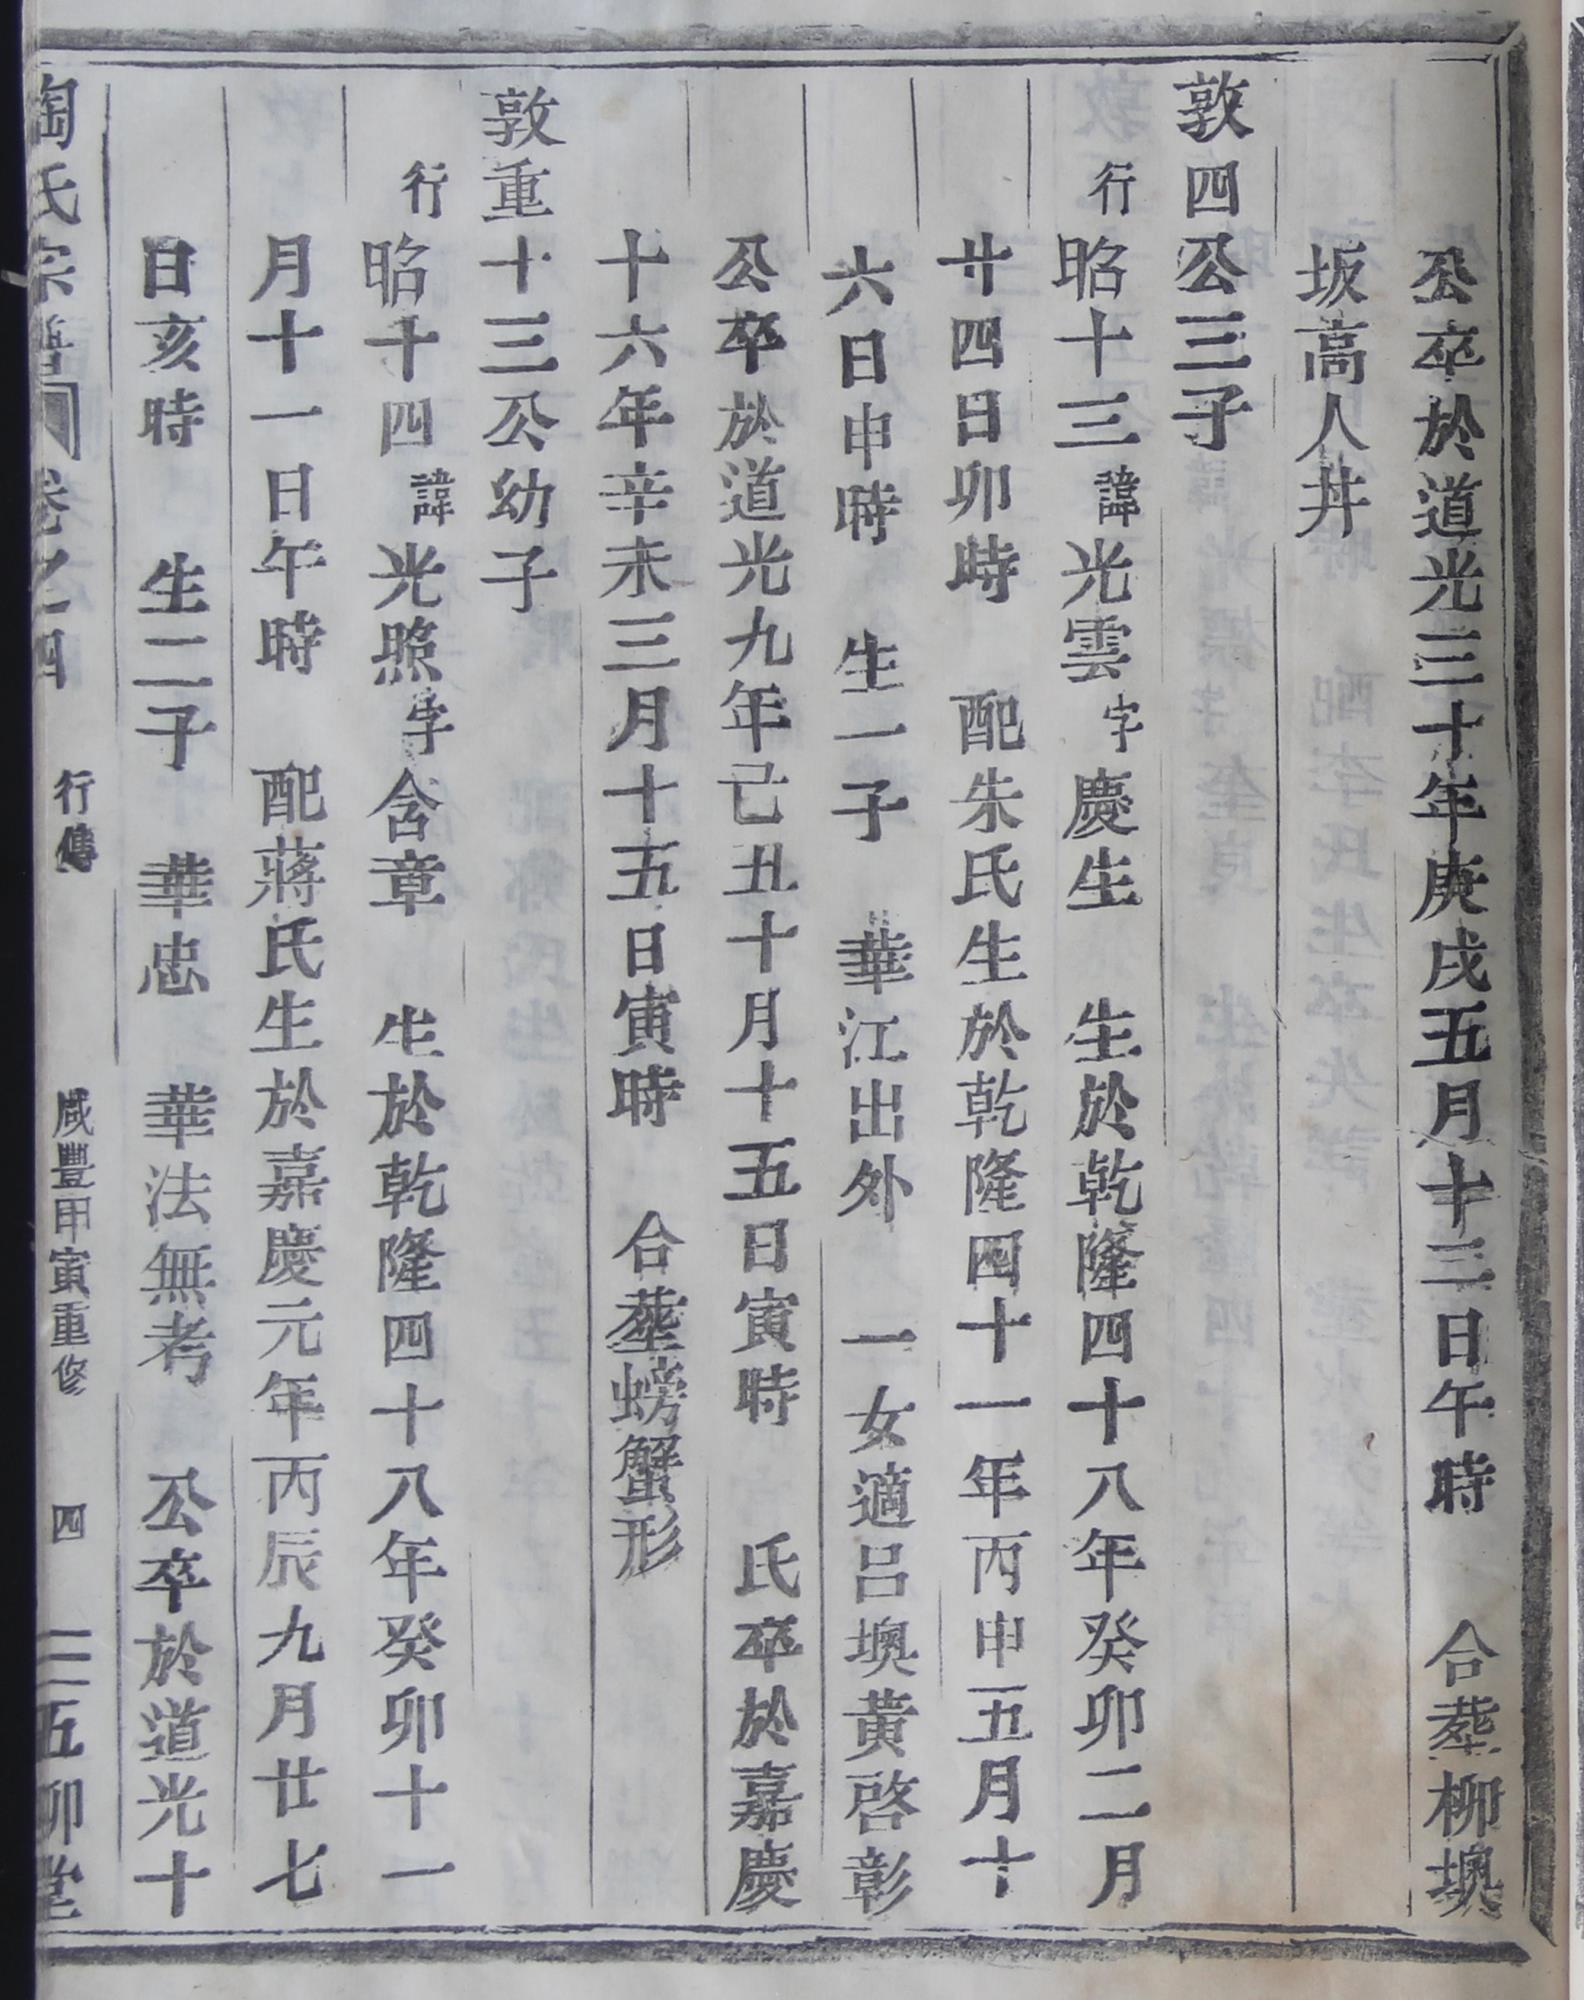 公卒於道光三十年庚戌五月十三日午時　合塟柳墺
坂高人丼
敦四公三子
行昭十三諱光雲字慶生　生於乾隆四十八年癸卯二月
廿四日卯時　配朱氏生於乾隆四十一年丙申五月十
六日申時　生一子　華江出外　一女適呂墺黃啓彰
公卒於道光九年己丑十月十五日寅時　氏卒於嘉慶
十六年辛未三月十五日寅時　合塟螃蟹形
敦重十三公幼子
行昭十四諱光照字含章　生於乾隆四十八年癸卯十一
月十一日午時　配蔣氏生於嘉慶元年丙辰九月廿七
日亥時　生二子　華忠　華法無考　公卒於道光十
陶氏宗譜　卷之四　行傳　咸豐甲寅重修　四　五柳堂